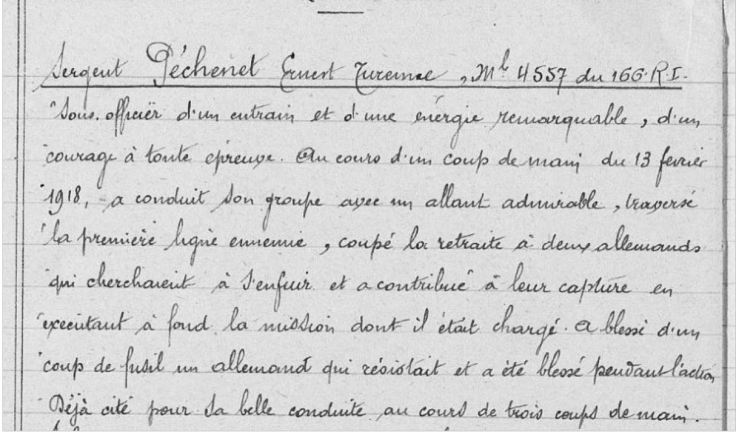 Sergent Péchenet Ernest Turenne, Mle 4557 du 166.R.I.
"Sous-officier d'un entrain et d'une énergie remarquable, d'un
"courage à toute épreuve. Au cours d'un coup de main du 13 fevrier
"1918, a conduit son groupe avec un allant admirable, traversé
"la première ligne ennemie, coupé la retraite à deux allemands
"qui cherchaient à s'enfuir et a contribué à leur capture en
"executant à fond la mission dont il était chargé. A blessé d'un
"coup de fusil un allemand qui résistait et a été blessé pendant l'action
"Déjà cité pour sa belle conduite au cours de trois coups de main.